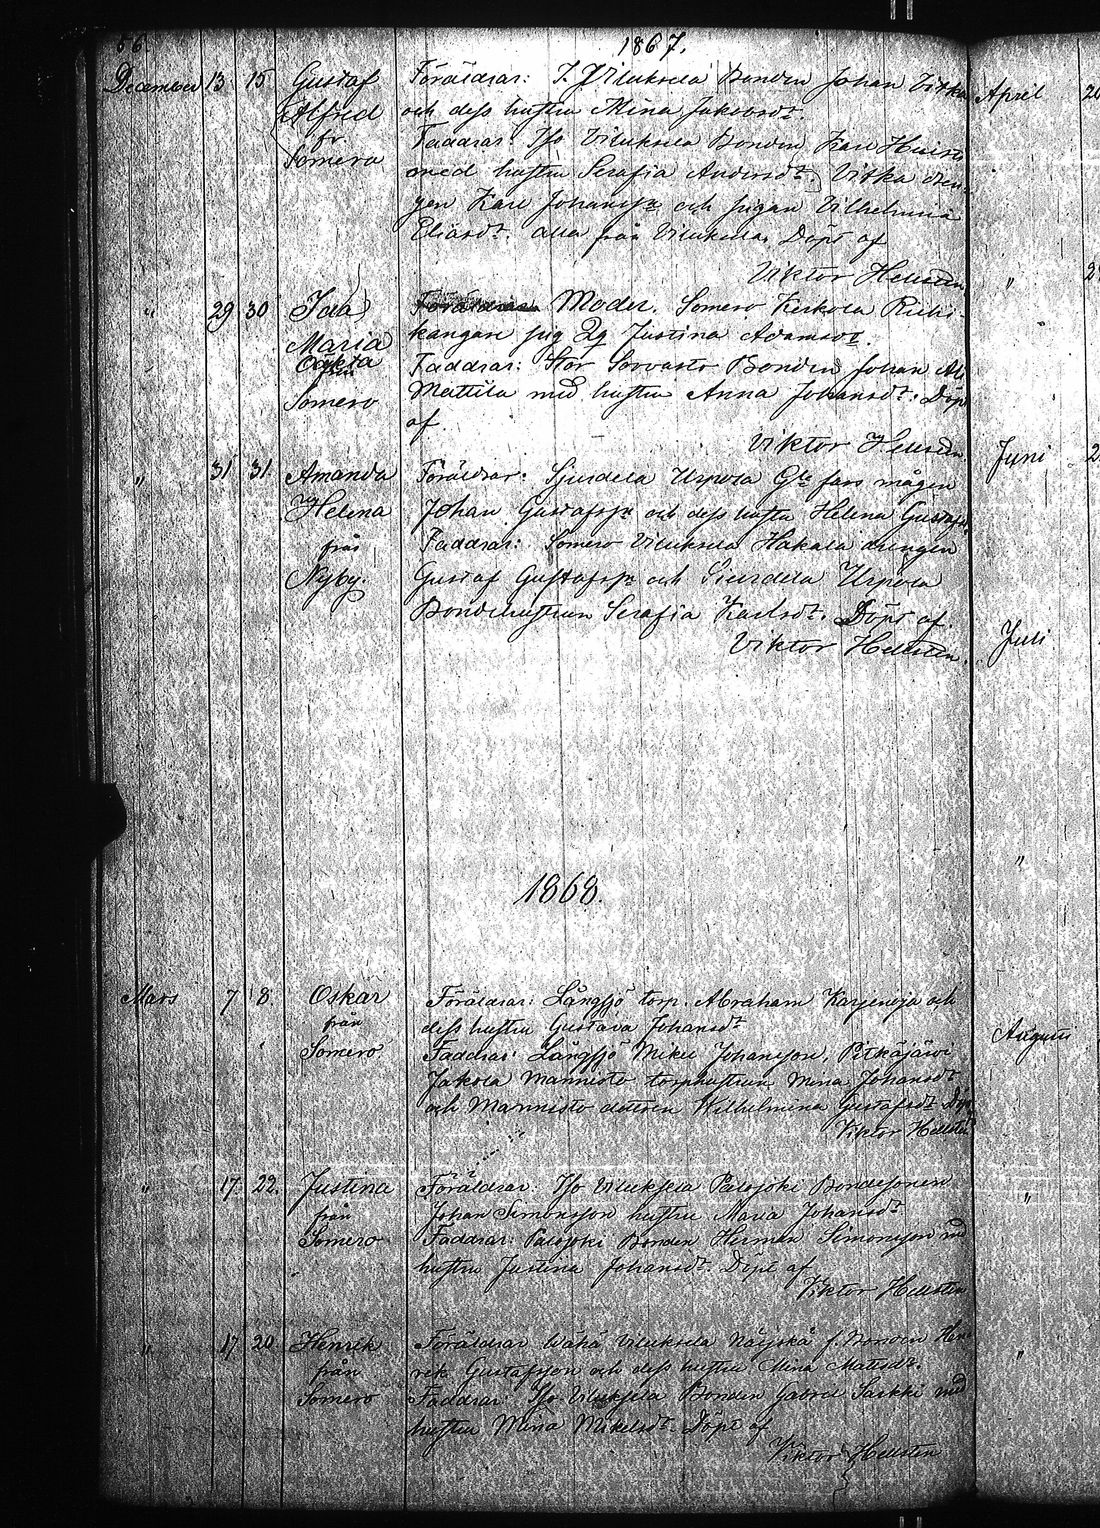 56.
1867.
December 13 15 Gustaf Föräldrar: I. Viluksela Bonden Johan Vitka
Alfred och dess hustru Mina Jakobsdr.
fr. Faddrar: Iso Viluksela Bonden Karl
Somero med hustru Serafia Andersdr, Vitka dren-
gen Karl Johansson och pigan Vilhelmina
Eliasdr. alla från Viluksela. Döpt af
Viktor Hellsten
" 29 30 Ida Moder. Somero Kerkola
Maria kangare pig Justina Adamsdr.
Oäkta Faddrar: Stor Sorvasto Bonden Johan
från Mattila med hustru Anna Johansdr. Döpt
Somero af
Viktor Hellsten
" 31 31 Amanda Föräldrar: Sjurdela Urpola fars mågen
Helena Johan Gustafsson och dess hustru Helena Gustafsdr
från Faddrar: Somero Viluksela Hakala drengen
Nyby. Gustaf Gustafsson och Siurdela Urpola
Bondehustrun Serafia Karlsdr. Döpt af.
Viktor Hellsten.
1868.
Mars 7 8 Oskar Föräldrar: Långsjö torp. Abraham Karjenoja och
från dess hustru Gustava Johansdr
Somero. Faddrar: Långsjö Mikel Johansson, Pitkäjärvi
Jakola Mannisto torphustrun Mina Johansdr
och Mannisto dottren Wilhelmina Gustafsdr Döpt
Viktor Hellsten
" 17 22. Justina Föräldrar: Iso Viluksela Palojoki Bondesonen
från Johan Simonsson hustru Maria Johansdr
Somero Faddrar: Palojoki Bonden Herman Simonsson med
hustru Justina Johansdr. Döpt af
Viktor Hellsten
" 17 20 Henrik Föräldrar Wähä Viluksela Näsjskä f. Bonden Hen-
från rik Gustafsson och dess hustru Mina Matsdr.
Somero Faddrar: Iso Viluksela Bonden Gabriel Sarkki med
hustru Mina Mikelsdr. Döpt af
Viktor Hellsten
April 20
"
Juni
Juli
"
Augusti
"
"